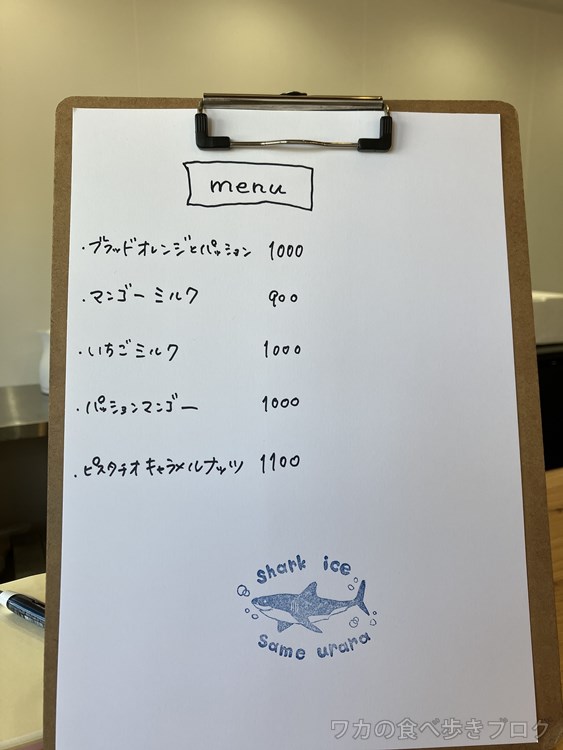 menu
・ブラッドオレンジとパッション 1000
・マンゴーミルク 900
・いちごミルク 1000
・パッションマンゴー 1000
・ピスタチオキャラメルナッツ 1100
shark ice
same urara
ワカの食べ歩きブログ